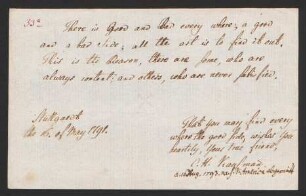 There is Good and Bad every where; a good
and a bad side; all the art is to find it out.
This is the Reason, there are some, who are
always content; and others, who are never satisfied.
Stutgardt
the of May 1791.
That you may find every
where the good side, wishes you
heartily, your true friend,
C. H.
1793 America